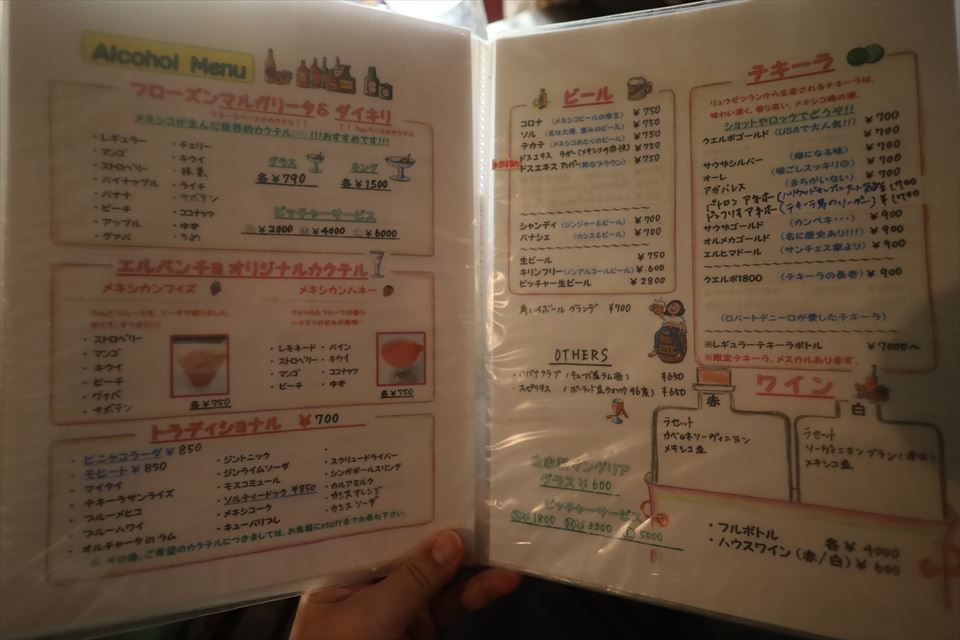 Alcohol Menu
フローズンマルガリータ& ダイキリ
テキーラベースのカクテル!! !! ラムベースのカクテル
メキシコが生んだ世界的カクテル!!!おすすめです!!!
・レギュラー
・マンゴ
・ストロベリー
・パイナップル
・バナナ
・ピーチ
・アップル
・グァバ
・チェリー
・キウイ
・抹茶
・ライチ
・サボテン
・ココナッツ
・ゆず
・うめ
グラス
各¥790
キング
各¥1500
ピッチャーサービス
Ⓢ¥2000 Ⓜ¥4000 Ⓛ¥6000
エルパンチョ オリジナルカクテル
メキシカンフィズ
ラムとフルーツを、ソーダで割りました。
甘くて、すっきり!!!
・ストロベリー
・マンゴ
・キウイ
・ピーチ
・グァバ
・サボテン
各¥750
メキシカンハネー
ウォッカとフルーツの香り
ハチミツの甘みが美味
・レモネード
・ストロベリー
・マンゴ
・ピーチ
・パイン
・キウイ
・ココナッツ
・ゆず
各¥750
トラディショナル ¥700
・ピニャコラーダ ¥850
・モヒート ¥850
・マイタイ
・テキーラサンライズ
・ブルーメヒコ
・ブルーハワイ
・オルチャータ in ラム
・ジントニック
・ジンライムソーダ
・モスコミュール
・ソルティードック ¥850
・メキシコーク
・キューバリブレ
・スクリュードライバー
・シンガポールスリング
・カルアミルク
・カシスオレンジ
・カシスソーダ
※ その他、ご希望のカクテルにつきましては、お気軽にstaffまでお尋ね下さい。
ビール
コロナ (メキシコビールの帝王) ¥750
ソル (名は太陽、恵みのビール) ¥750
テカテ (メキシコのたくのビール) ¥750
ドスエキス ラガー ¥750
ドスエキス アンバー
シャンディ (ジンジャー&ビール) ¥700
パナシェ (カシス&ビール) ¥700
生ビール ¥750
キリンフリー (ノンアルコールビール) ¥600
ピッチャー生ビール ¥2800
角ハイボール グランデ ¥700
OTHERS
・ハバナクラブ (キューバ産ラム酒) ¥650
・スピリタス (ポーランド産ウォッカ 96度) ¥650
自家製サングリア
グラス ¥600
ピッチャーサービス
Ⓢ¥1800 Ⓜ¥3300 Ⓛ5000
テキーラ
リュウゼツランから生産されるテキーラは、
味わい深く、香り高い、メキシコ魂の酒。
ショットやロックでどうぞ!!
クエルボゴールド (USAで大人気!!) ¥700
サウサシルバー (癖になる味) ¥700
オーレ (喉ごしスッキリ◎) ¥700
アガバレス (まちがいない) ¥700
パトロン アネホ ¥1,700
ドンフリオ アネホ (テキーラ界のリーダー) ¥1,700
サウサゴールド (カンペキ・・・) ¥900
オルメカゴールド (名に歴史あり!!!) ¥900
エルヒマドール (サンチェス家より) ¥900
クエルボ1800 (テキーラの長老) ¥900
(ロバートデニーロが愛したテキーラ)
※レギュラーテキーラボトル ¥7000~
※限定テキーラ、メスカルあります。
ワイン
赤
ラセット
カベルネソーヴィニヨン
メキシコ産
白
ラセット
ソーヴィニヨンブラン (辛口)
メキシコ産
・フルボトル 各¥4000
・ハウスワイン (赤/白) ¥600